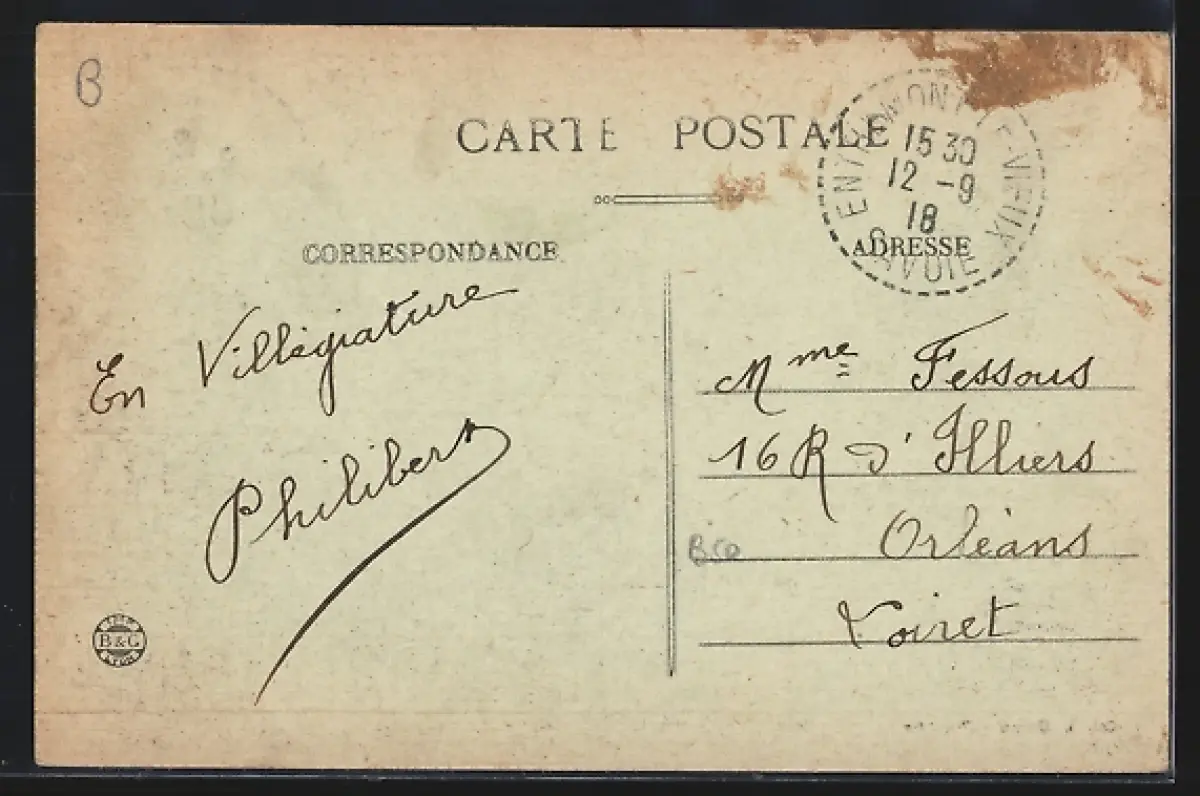 B
CARTE POSTALE
ENTREMONT-LE-VIEUX
15 30
12 -9
18
SAVOIE
CORRESPONDANCE
ADRESSE
En Villégiature
Philibert
Mme Fessous
16 R d'Illiers
Orléans
Loiret
B&G
LYON